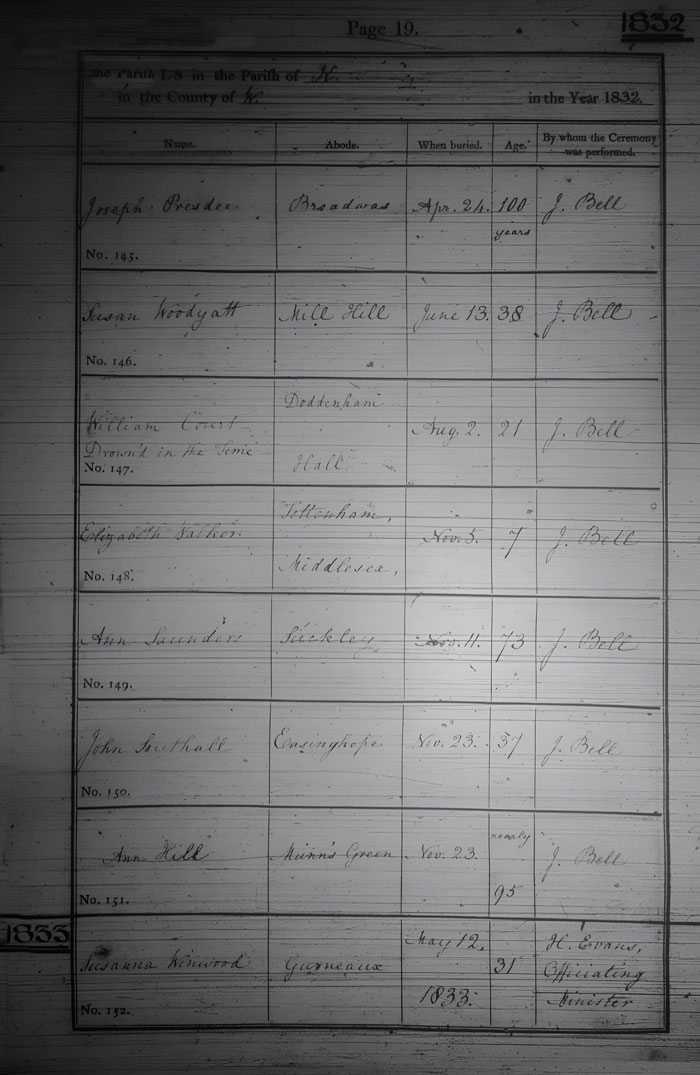 Page 19.
1832
the Parish L S in the Parish of K
in the County of W. in the Year 1832.
Name. Abode. When buried. Age. By whom the Ceremony was performed.
Joseph Presdee Broadwas Apr. 24. 100 years J. Bell
No. 145.
Susan Woodyatt Mill Hill June 13. 38 J. Bell
No. 146.
William Court Doddenham Hall Aug. 2. 21 J. Bell
Drown'd in the Teme
No. 147.
Elizabeth Walker. Tottenham, Middlesex, Nov. 5. 7 J. Bell
No. 148.
Ann Saunders Suckley Nov. 11. 73 J. Bell
No. 149.
John Southall Easinghope Nov. 23. 37 J. Bell
No. 150.
Ann Hill Munn's Green Nov. 23. nearly 95 J. Bell
No. 151.
1833
Susanna Winwood Gurneaux May 12, 1833. 31 H. Evans, Officiating Minister
No. 152.